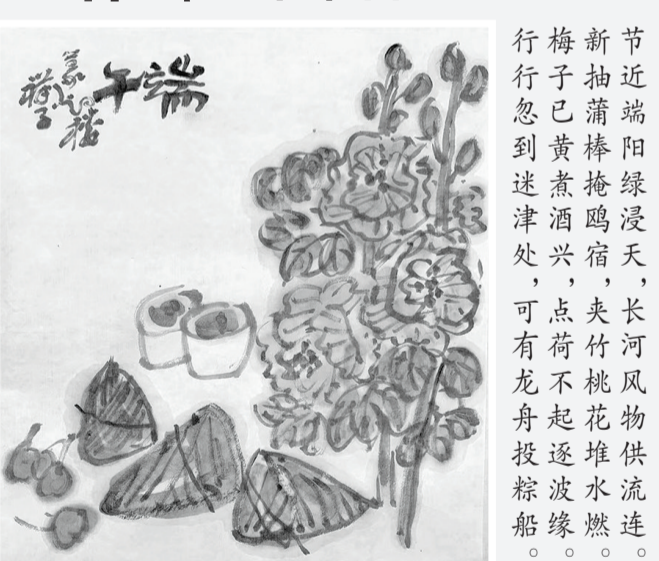 节近端阳绿浸天，长河风物供流连。
新抽蒲棒掩鸥宿，夹竹桃花堆水燃。
梅子已黄煮酒兴，点荷不起逐波缘。
行行忽到迷津处，可有龙舟投粽船。
端午